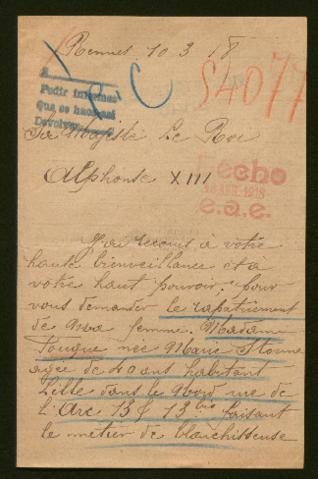 Rennes 10 3 18
S4077
Pedir informes
Que se haga
Devolver
P C
Sa Majesté Le Roi
Alphonse XIII
Hecho
1918
e.a.e.
J'ai recours à votre
haute bienveillance et à
votre haut pouvoir, pour
vous demander le rapatriement
de ma femme. Madame
née Marie
agée de 40 ans habitant
Lille dans le Nord rue de
l'Arc 13 13 bis faisant
le métier de blanchisseuse